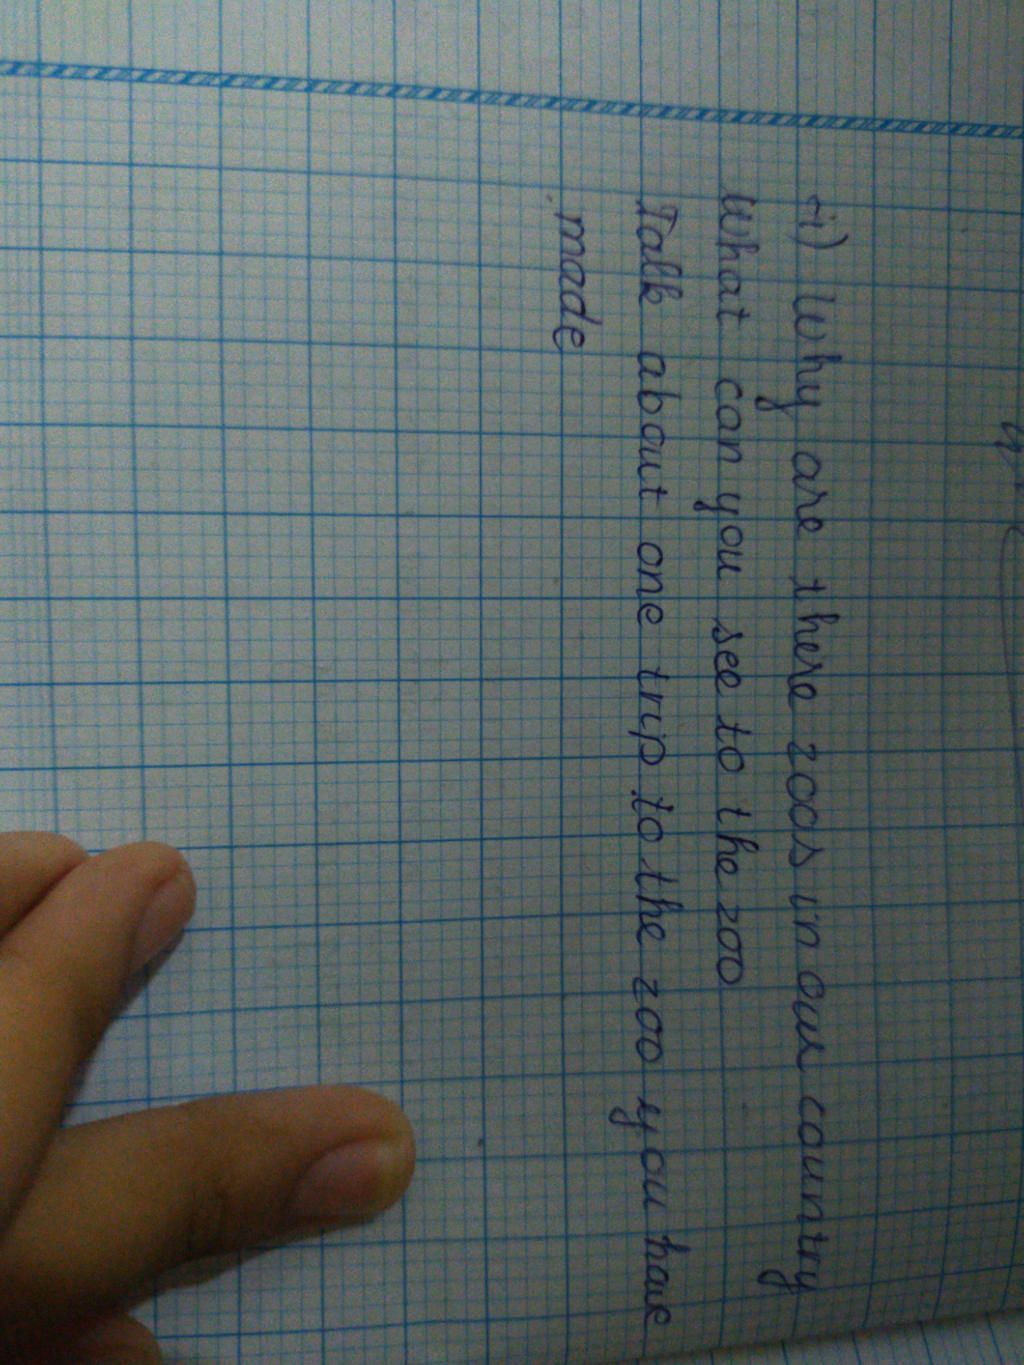 i) Why are there zoos in our country
What can you see to the zoo
Talk about one trip to the zoo you have
made